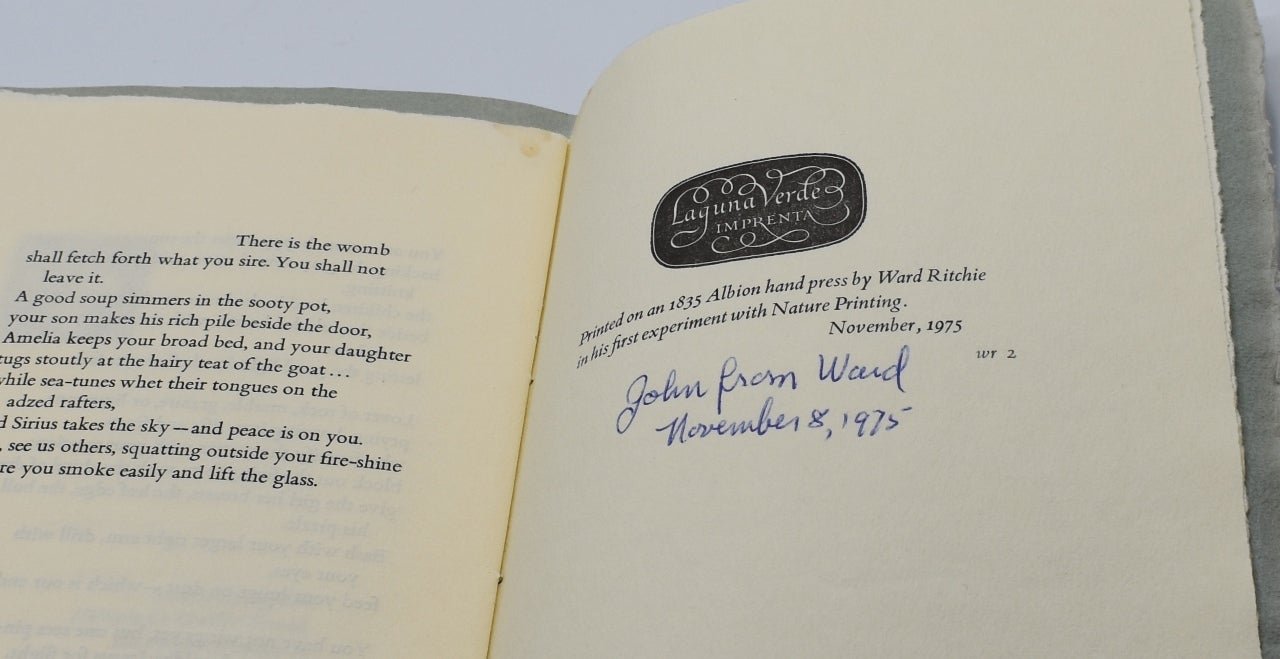 There is the womb
shall fetch forth what you sire. You shall not
leave it.
A good soup simmers in the sooty pot,
your son makes his rich pile beside the door,
Amelia keeps your broad bed, and your daughter
tugs stoutly at the hairy teat of the goat ...
while sea-tunes whet their tongues on the
adzed rafters,
Sirius takes the sky—and peace is on you.
see us others, squatting outside your fire-shine
you smoke easily and lift the glass.
Laguna Verde
IMPRENTA
Printed on an 1835 Albion hand press by Ward Ritchie
in his first experiment with Nature Printing.
November, 1975
wr 2
John from Ward
November 8, 1975